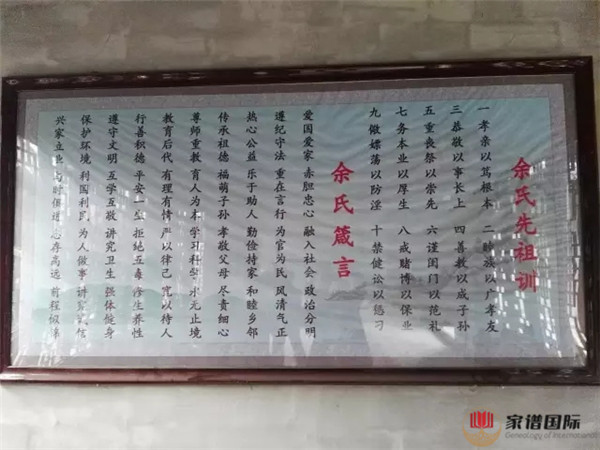 余氏先祖训
一 孝亲以笃根本 二 睦族以广孝友
三 恭敬以事长上 四 善教以成子孙
五 重丧祭以崇先 六 谨闺门以范礼
七 务本业以厚生 八 戒赌博以保业
九 儆嫖荡以防淫 十 禁健讼以惩习
余氏箴言
爱国爱家 赤胆忠心 融入社会 政治分明
遵纪守法 重在言行 为官为民 风清气正
热心公益 乐于助人 勤俭持家 和睦乡邻
传承祖德 福荫子孙 孝敬父母 尽责细心
尊师重教 育人为本 学习科学 永无止境
教育后代 有理有情 严以律己 宽以待人
行善积德 平安一生 拒绝五毒 修生养性
遵守文明 互学互敬 讲究卫生 强体健身
保护环境 利国利民 为人做事 讲究诚信
兴家立业 志存高远 前程似锦
家谱国际
Genealogy of International